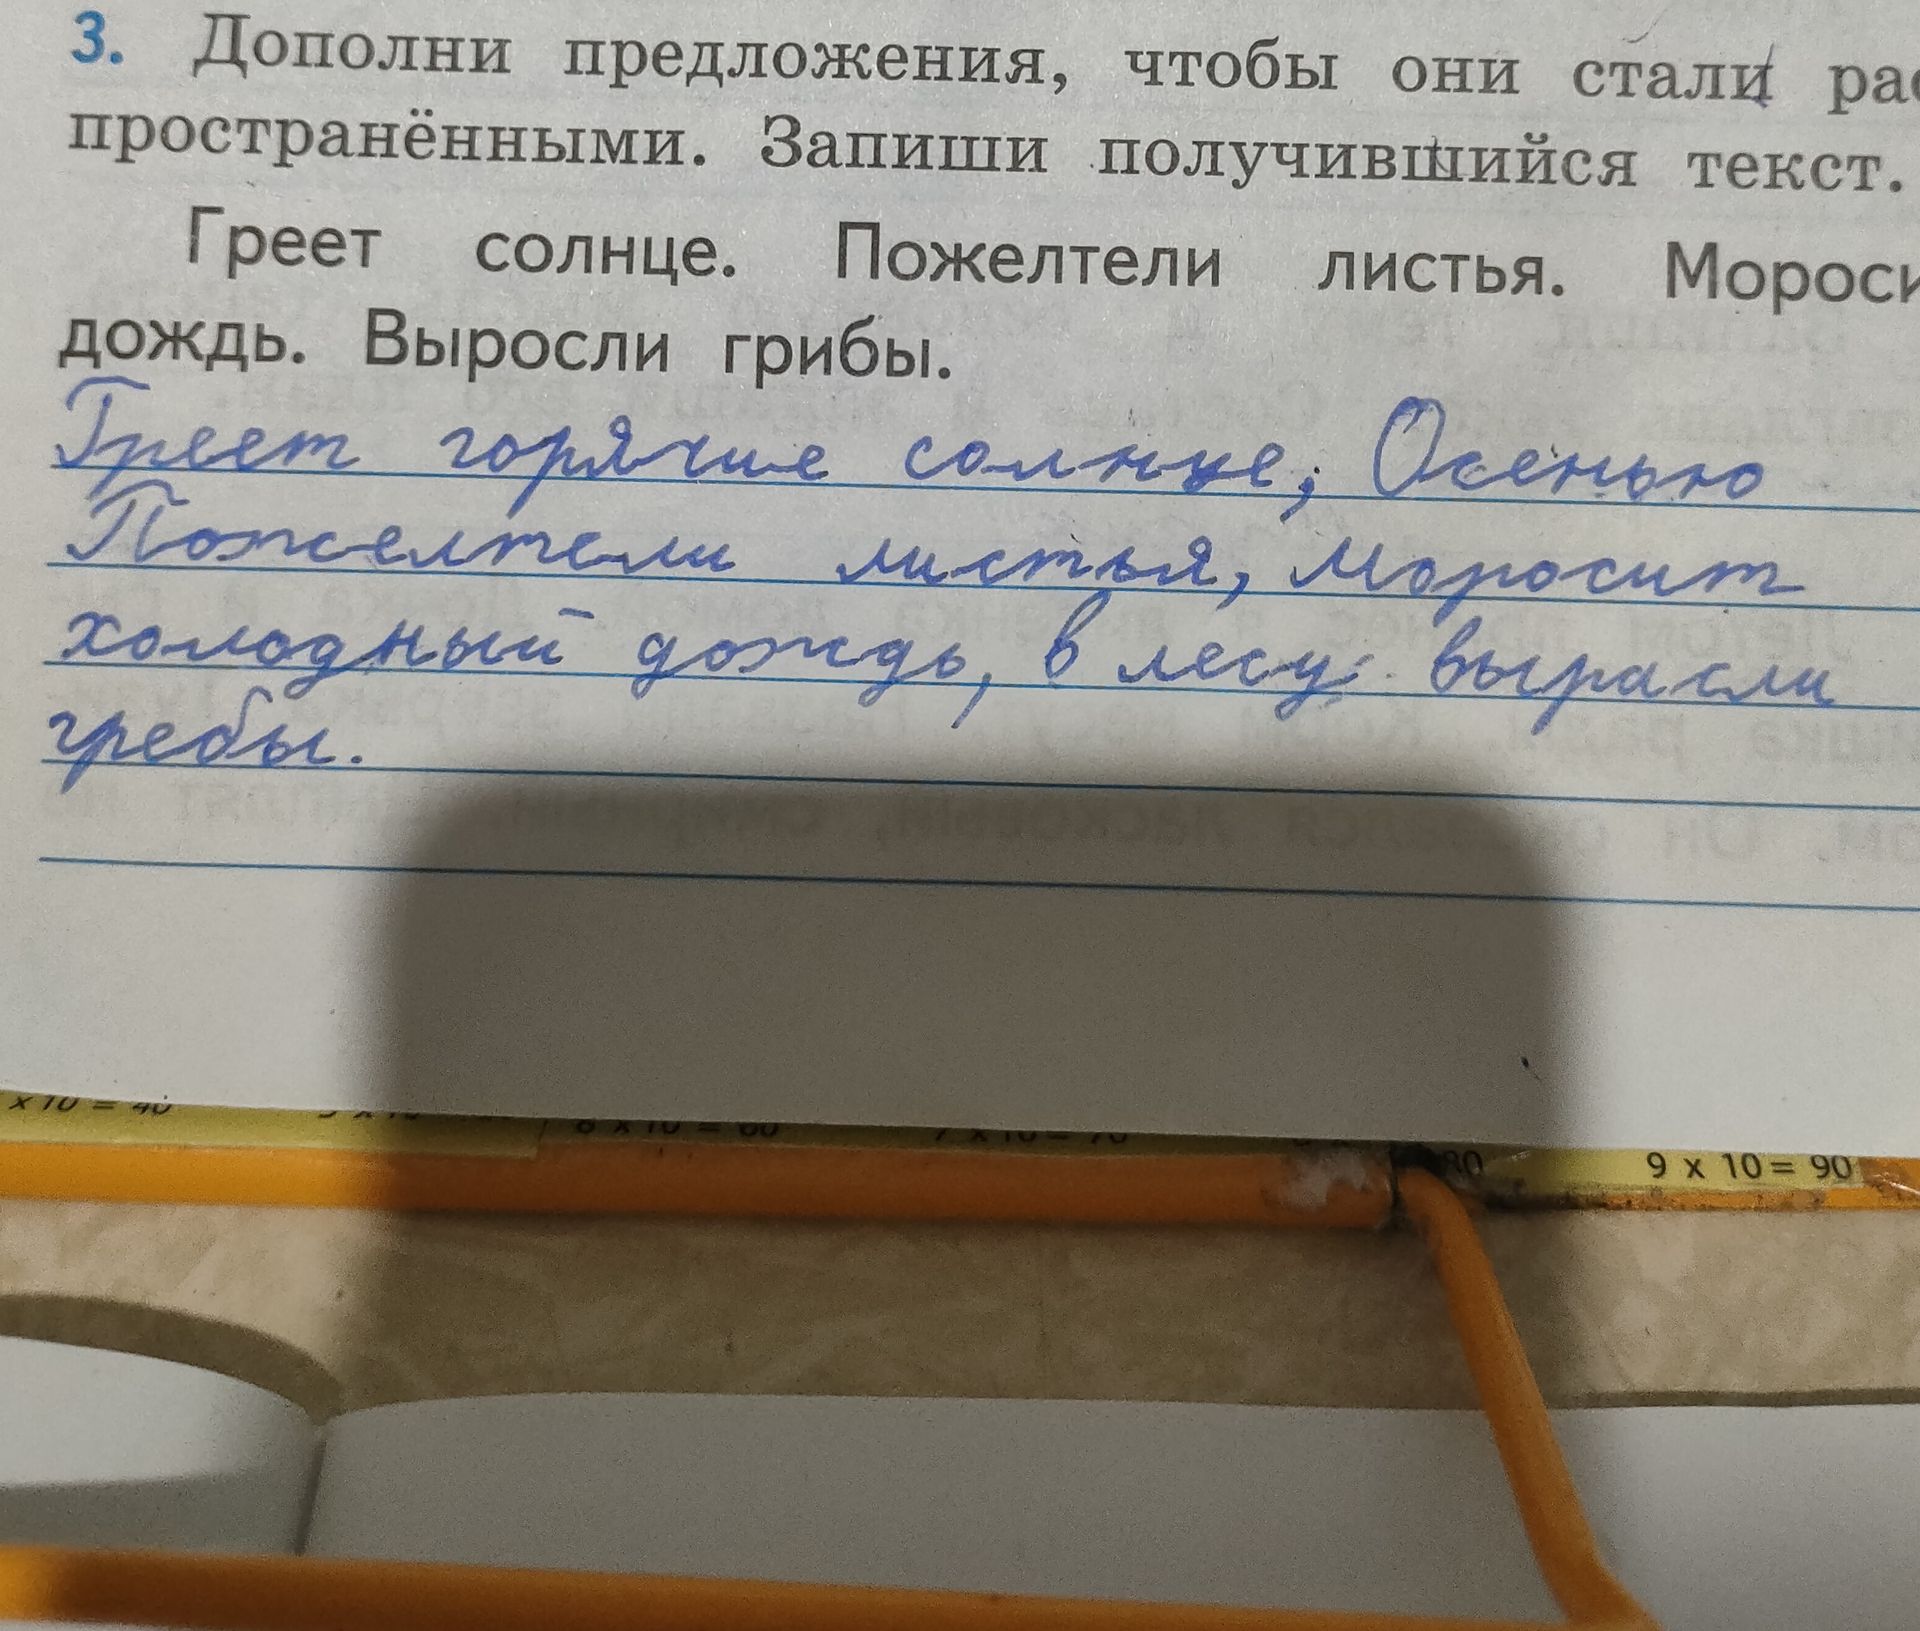 3. Дополни предложения, чтобы они стали рас
пространёнными. Запиши получившийся текст.
Греет солнце. Пожелтели листья. Мороси
дождь. Выросли грибы.
Греет горячие солнце, Осенью
Пожелтели листья, Моросит
холодный дождь, в лесу вырасли
гребы.
x 10 = 40
6 x 10 = 60
7 x 10 = 70
80
9 x 10 = 90